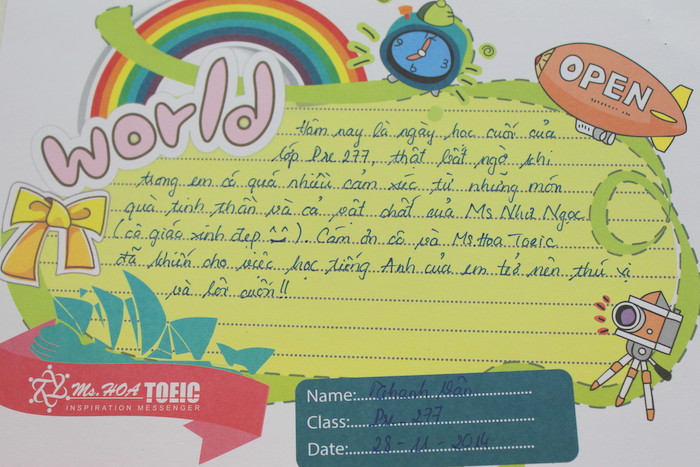 world
OPEN
Hôm nay là ngày học cuối của
lớp Pre 277, thật bất ngờ khi
trong em có quá nhiều cảm xúc từ những món
quà tinh thần và cả vật chất của Ms Như Ngọc
(cô giáo xinh đẹp ^^). Cám ơn cô và Ms Hoa Toeic
đã khiến cho việc học tiếng Anh của em trở nên thú vị
và lôi cuốn!!
Ms. HOA TOEIC
INSPIRATION MESSENGER
Name: Khanh Vân
Class: Pre 277
Date: 28-11-2014